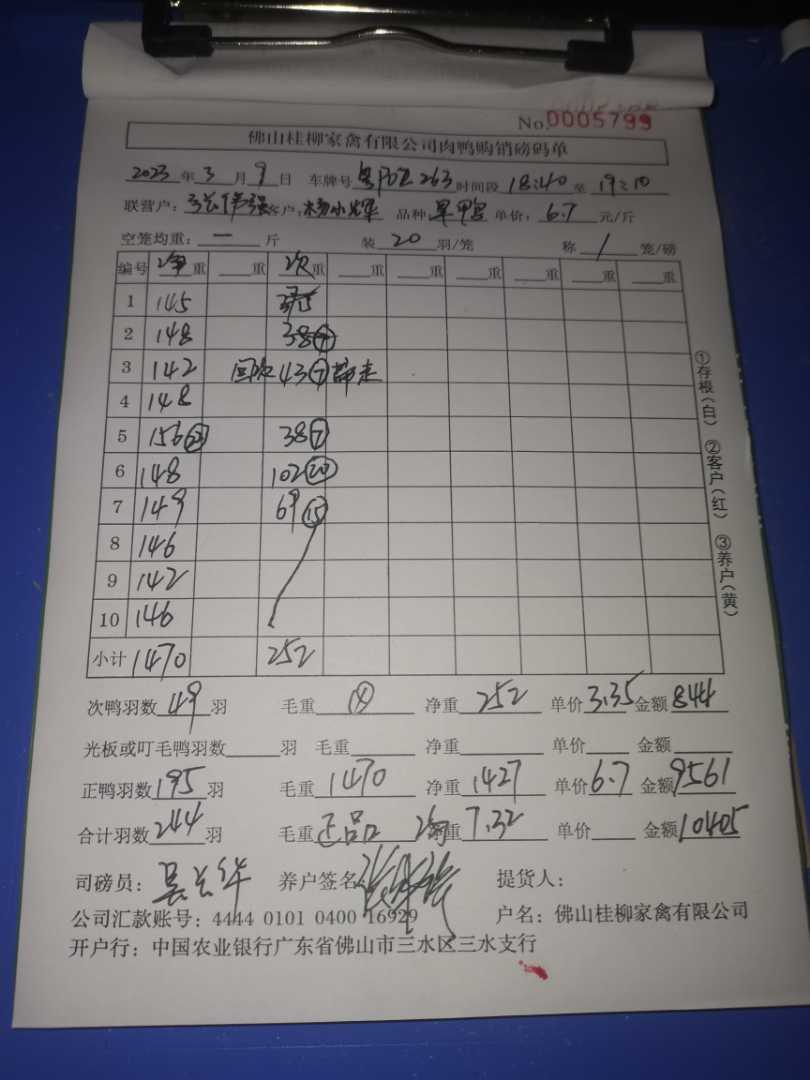 No. 0005799
佛山桂柳家禽有限公司肉鸭购销磅码单
2023年3月9日 车牌号 263 时间段 18:40 至 19:10
联营户: 客户: 杨小辉 品种 单价: 6.7 元/斤
空笼均重: 一 斤 装 20 羽/笼 称 1 笼/磅
编号 净重 重 次重 重 重 重 重 重 重
1 145
2 148 38
3 142 43⑦
4 148
5 156 38⑦
6 148 102⑳
7 149 69⑮
8 146
9 142
10 146
小计 1470 252
①存根(白) ②客户(红) ③养户(黄)
次鸭羽数 49 羽 毛重 净重 252 单价 3.35 金额 844
光板或叮毛鸭羽数 羽 毛重 净重 单价 金额
正鸭羽数 195 羽 毛重 1470 净重 1427 单价 6.7 金额 9561
合计羽数 244 羽 毛重 正品 重 7.32 单价 金额 10405
司磅员: 养户签名 提货人:
公司汇款账号: 4444 0101 0400 16929 户名: 佛山桂柳家禽有限公司
开户行: 中国农业银行广东省佛山市三水区三水支行